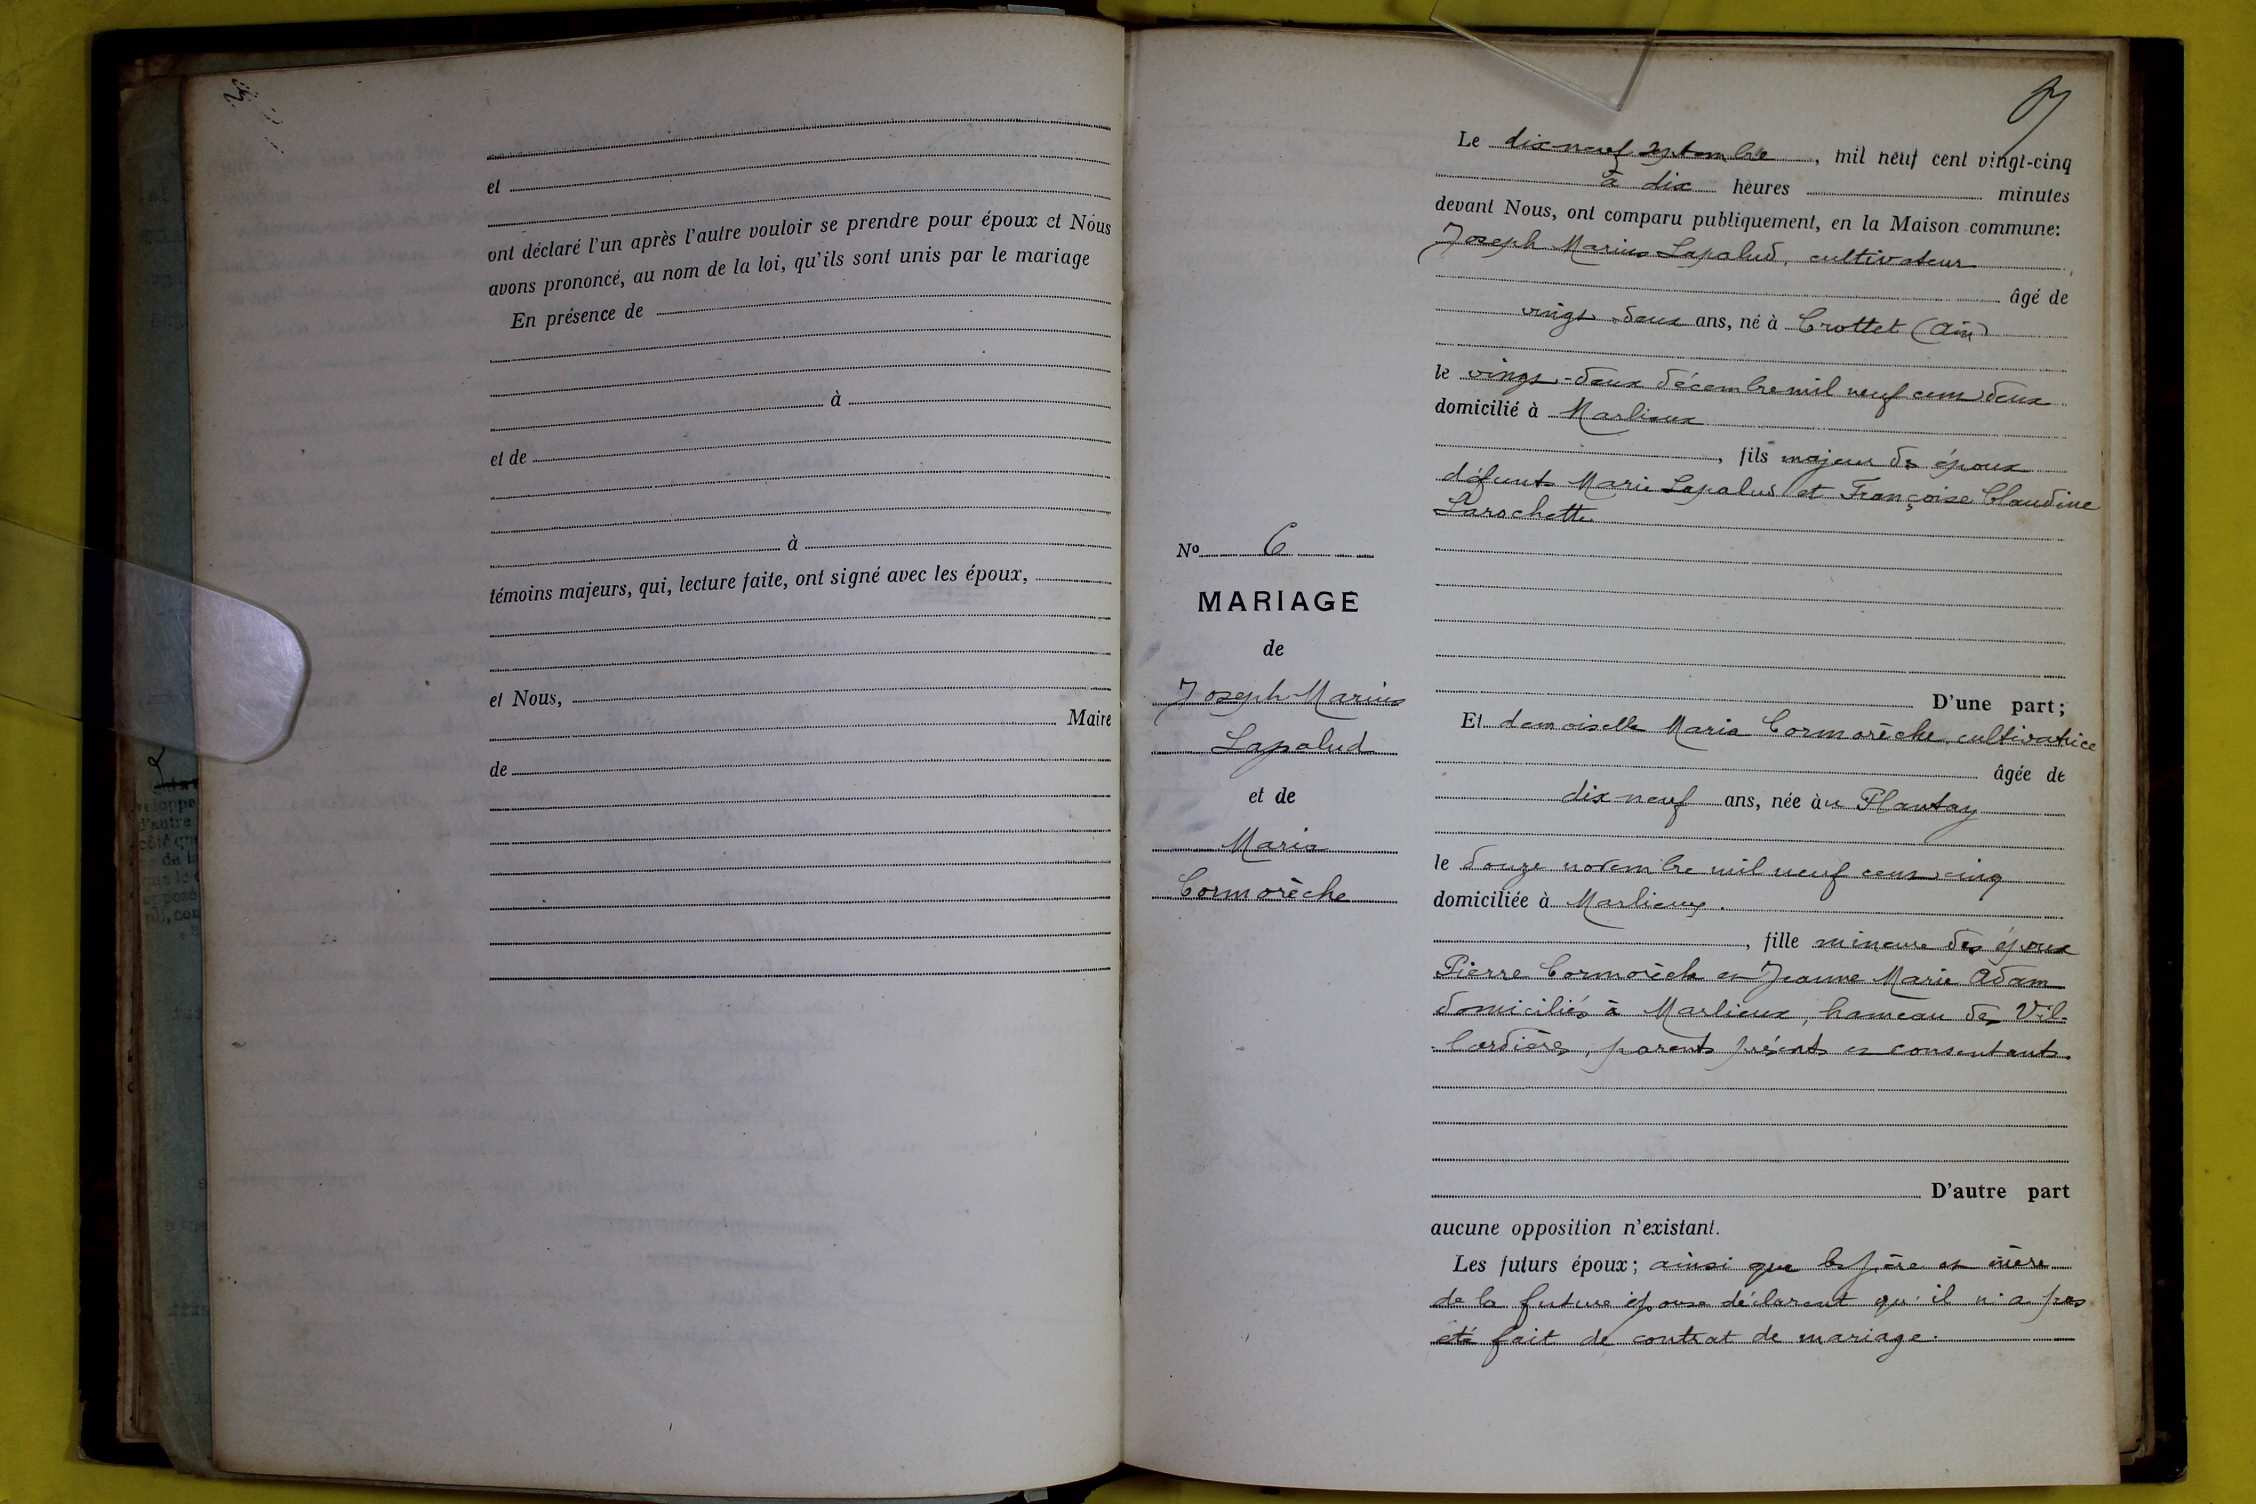 et
ont déclaré l'un après l'autre vouloir se prendre pour époux et Nous
avons prononcé, au nom de la loi, qu'ils sont unis par le mariage
En présence de
à
et de
à
témoins majeurs, qui, lecture faite, ont signé avec les époux,
et Nous,
Maire
de
No 6
MARIAGE
de
Joseph Marius
Lapalud
et de
Maria
Cormorèche
Le dix neuf septembre, mil neuf cent vingt-cinq
à dix heures minutes
devant Nous, ont comparu publiquement, en la Maison commune:
Joseph Marius Lapalud, cultivateur
âgé de
vingt-deux ans, né à Crottet (Ain)
le vingt-deux décembre mil neuf cent deux
domicilié à Marlieux
, fils majeur des époux
défunts Marie Lapalud et Françoise Claudine
Larochette
D'une part;
Et demoiselle Maria Cormorèche, cultivatrice
âgée de
dix neuf ans, née àu Plantay
le douze novembre mil neuf cent cinq
domiciliée à Marlieux.
, fille mineure des époux
Pierre Cormorèche et Jeanne Marie Adam
domiciliés à Marlieux, hameau des Vil-
lardières, parents présents et consentants.
D'autre part
aucune opposition n'existant.
Les futurs époux; ainsi que les père et mère
de la future épouse déclarent qu'il n'a pas
été fait de contrat de mariage.